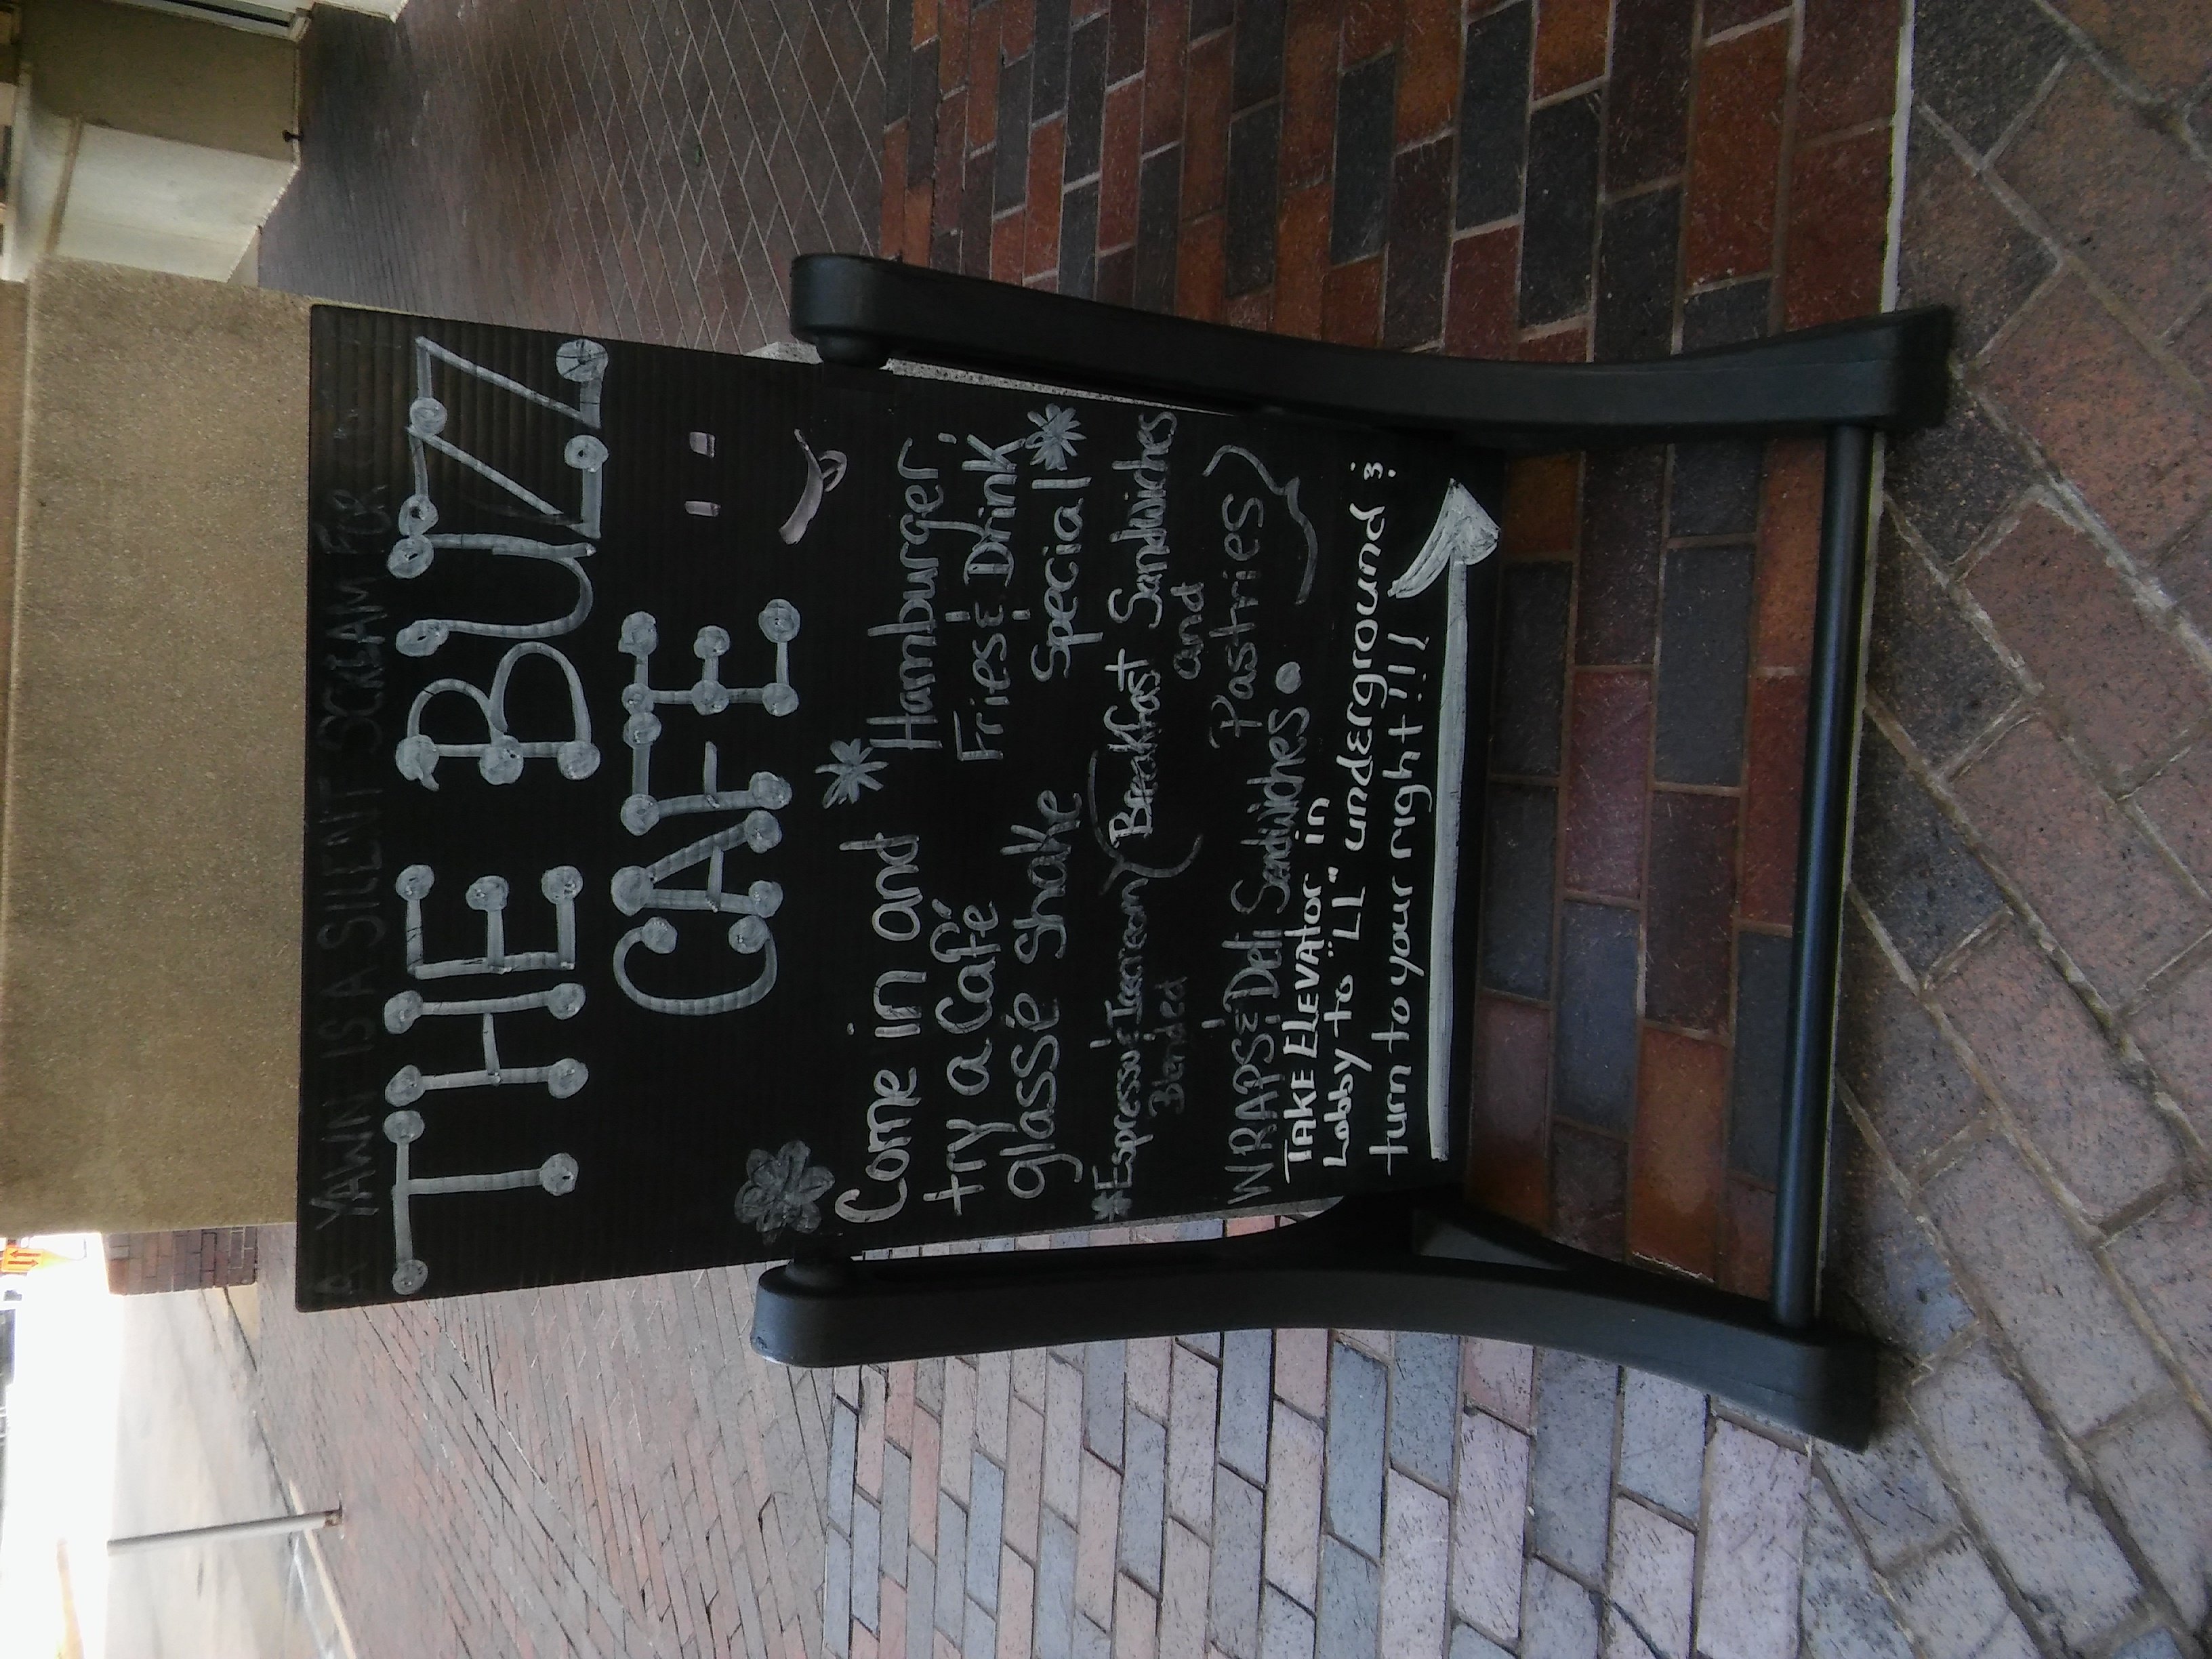 A YAWN IS A SILENT SCREAM FOR
THE BUZZ
CAFE
Come in and
try a Café
glassé shake
* Hamburger,
Fries & Drink
Special *
*Espresso & Icecream
Blended
Breakfast Sandwiches
and
Pastries
WRAPS & Deli Sandwiches
TAKE ELEVATOR in
Lobby to "LL" underground &
turn to your right!!!!